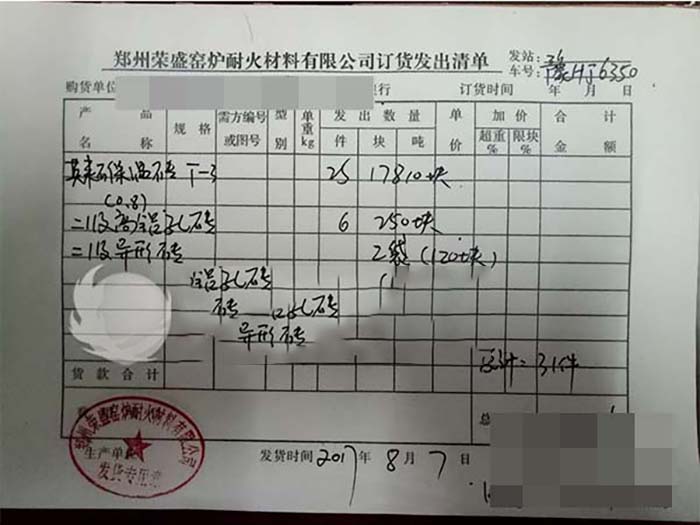 郑州荣盛窑炉耐火材料有限公司订货发出清单
发站:
车号: 豫HJ6350
购货单位 银行 订货时间 年 月 日
产品名称 规格 需方编号或图号 型别 单重kg 发出数量 件 块 吨 单价 加价 超重% 限块% 合计金额
莫来石保温砖 T-3 25 17810块
(0.8)
二级高铝孔砖 6 250块
二级异形砖 2袋(120块)
铝孔砖
砖 孔砖
异形砖
总计=31件
货款合计
总
郑州荣盛窑炉耐火材料有限公司
发货专用章
生产单位
发货时间 2017年8月7日